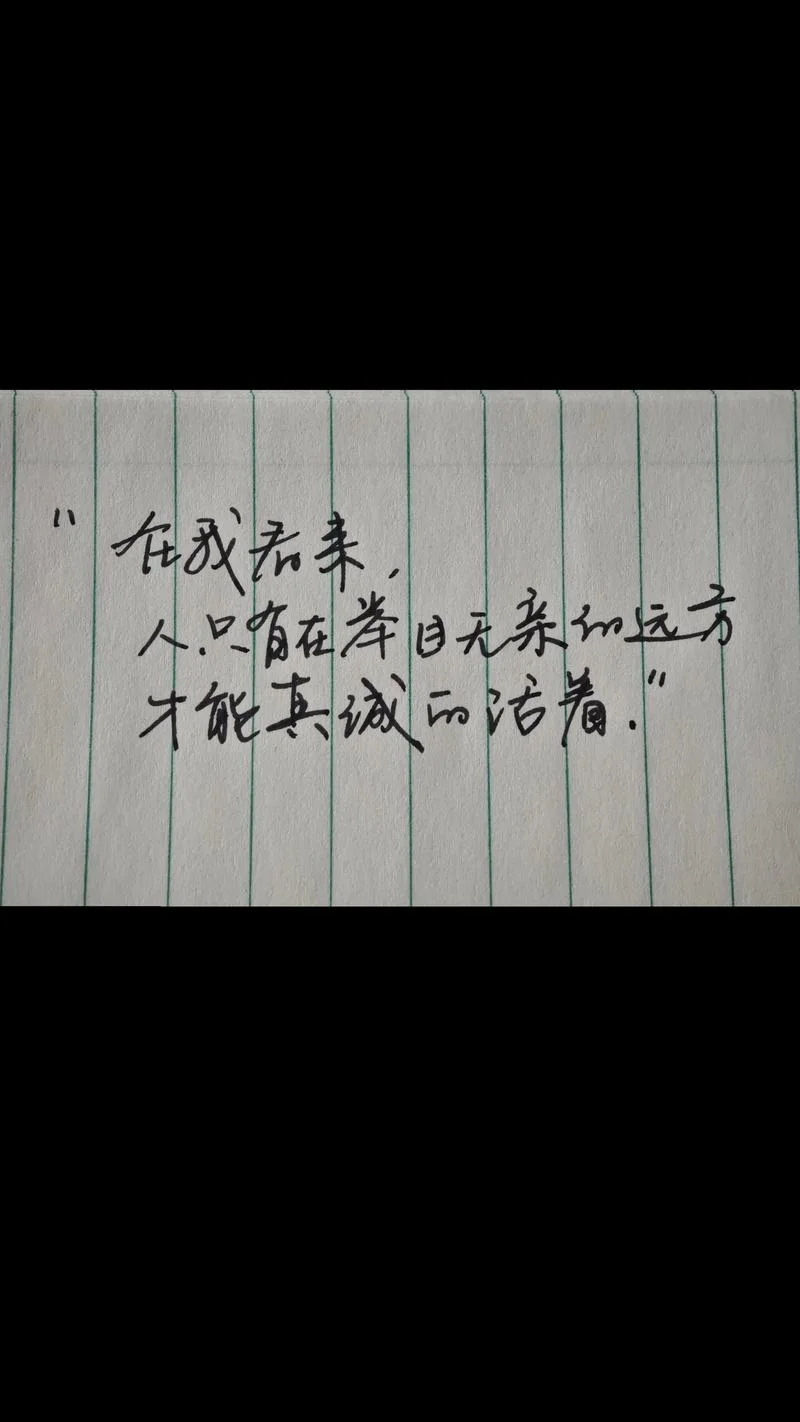 “在我看来，
人只有在举目无亲的远方
才能真诚的活着.”